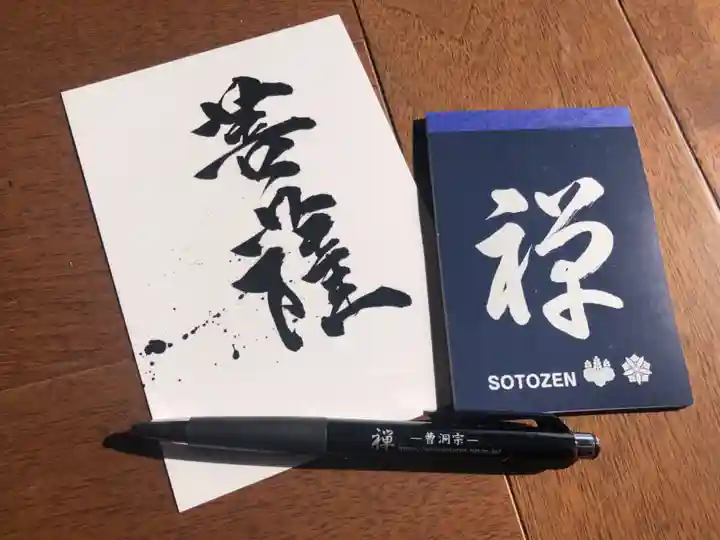 菩薩
禅
SOTOZEN
禅 ―曹洞宗―